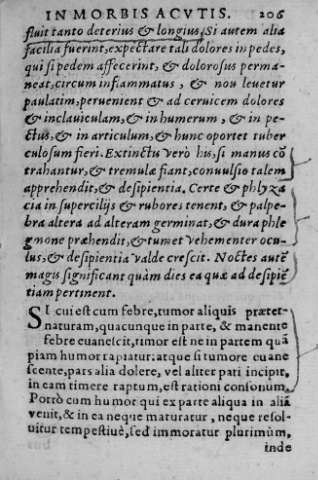 IN MORBIS ACVTIS. 206
fluit tanto deterius & longius. Si autem alia
facilia fuerint, expectare tali dolores in pedes,
qui si pedem affecerint, & dolorosus perma-
neat, circum inflammatus, & non leuetur
paulatim, peruenient & ad ceruicem dolores
& inclauiculam, & in humerum, & in pe-
ctus, & in articulum, & hunc oportet tuber
culosum fieri. Extinctu verò his, si manus cō
trahantur, & tremulæ fiant, conuulsio talem
apprehendit, & desipientia. Certe & phlyza
cia in supercilijs & rubores tenent, & palpe-
bra altera ad alteram germinat, & dura phle
gmone præhendit, & tumet vehementer ocu-
lus, & desipientia valde crescit. Noctes autē
magis significant quàm dies ea quæ ad desipiē
tiam pertinent.
SI cui est cum febre, tumor aliquis præter-
naturam, quacunque in parte, & manente
febre euanescit, timor est ne in partem quā
piam humor rapiatur: atque si tumore euane
scente, pars alia dolere, vel aliter pati incipit,
in eam timere raptum, est rationi consonum.
Porrò cum humor qui ex parte aliqua in aliā
venit, & in ea neque maturatur, neque resol-
uitur tempestiuè, sed immoratur plurimùm,
inde